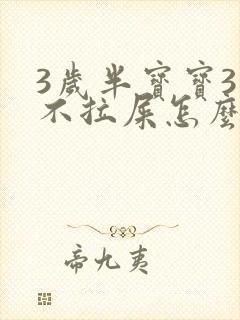 3歲半寶寶3
不拉屎怎麼
帝九夷